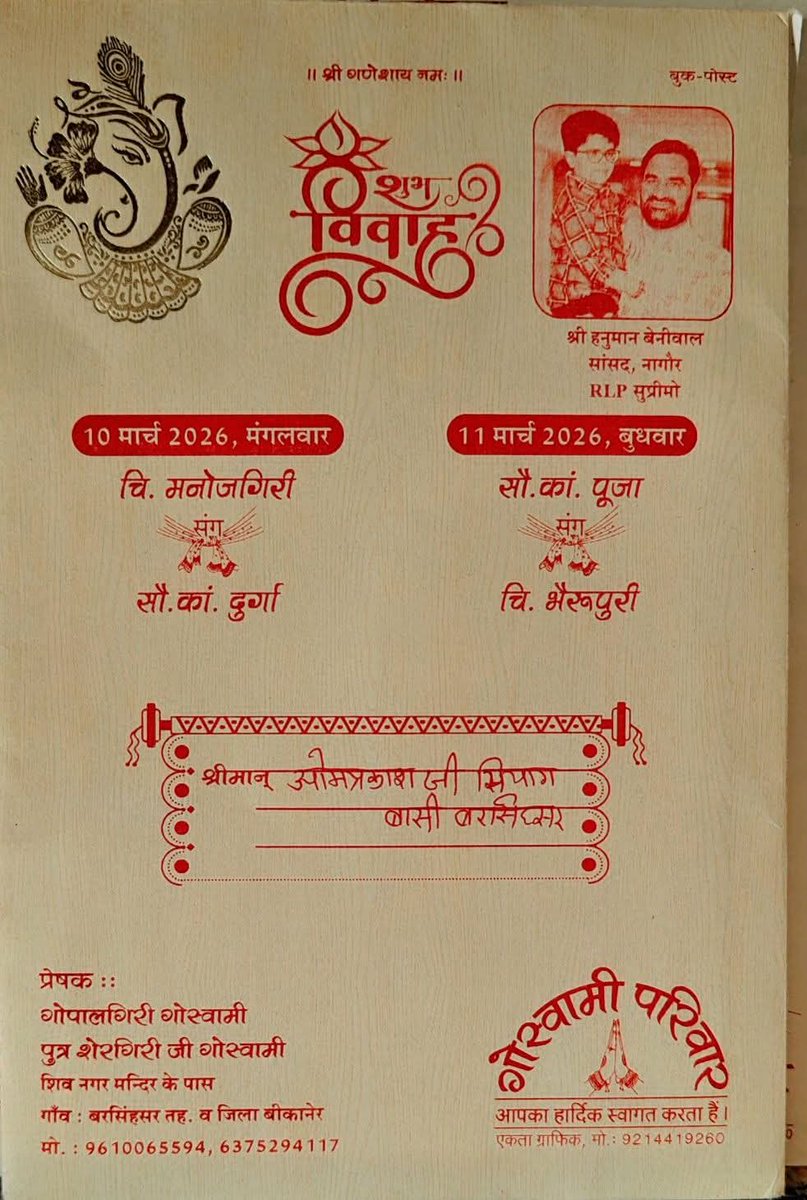 ॥ श्री गणेशाय नमः ॥
बुक-पोस्ट
शुभ
विवाह
श्री हनुमान बेनीवाल
सांसद, नागौर
RLP सुप्रीमो
10 मार्च 2026, मंगलवार
चि. मनोजगिरी
संग
सौ.कां. दुर्गा
11 मार्च 2026, बुधवार
सौ.कां. पूजा
संग
चि. भैरूपुरी
श्रीमान् ओमप्रकाश जी सियाग
बासी बरसिंघसर
प्रेषक ::
गोपालगिरी गोस्वामी
पुत्र शेरगिरी जी गोस्वामी
शिव नगर मन्दिर के पास
गाँव : बरसिंहसर तह. व जिला बीकानेर
मो. : 9610065594, 6375294117
गोस्वामी परिवार
आपका हार्दिक स्वागत करता हैं।
एकता ग्राफिक, मो.: 9214419260